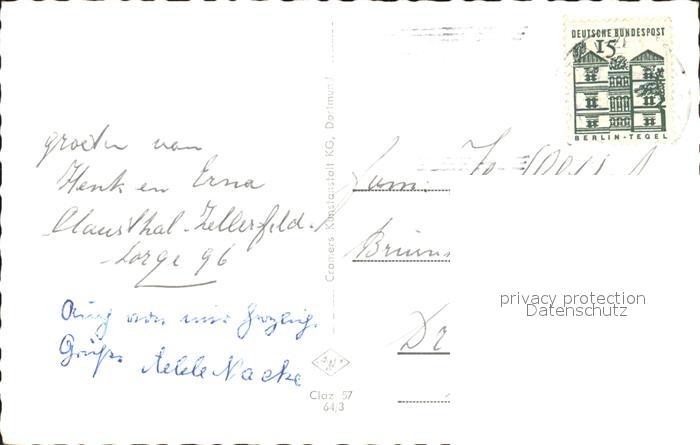 DEUTSCHE BUNDESPOST
15
BERLIN-TEGEL
groeten van
Henk en Erna
Clausthal-Zellerfeld.
Sorge 96
Auch von mir herzlich.
Grüße Adele Nacke
Cramers Kunstanstalt KG, Dortmund
Fam.
Claz 57
64/3
privacy protection
Datenschutz